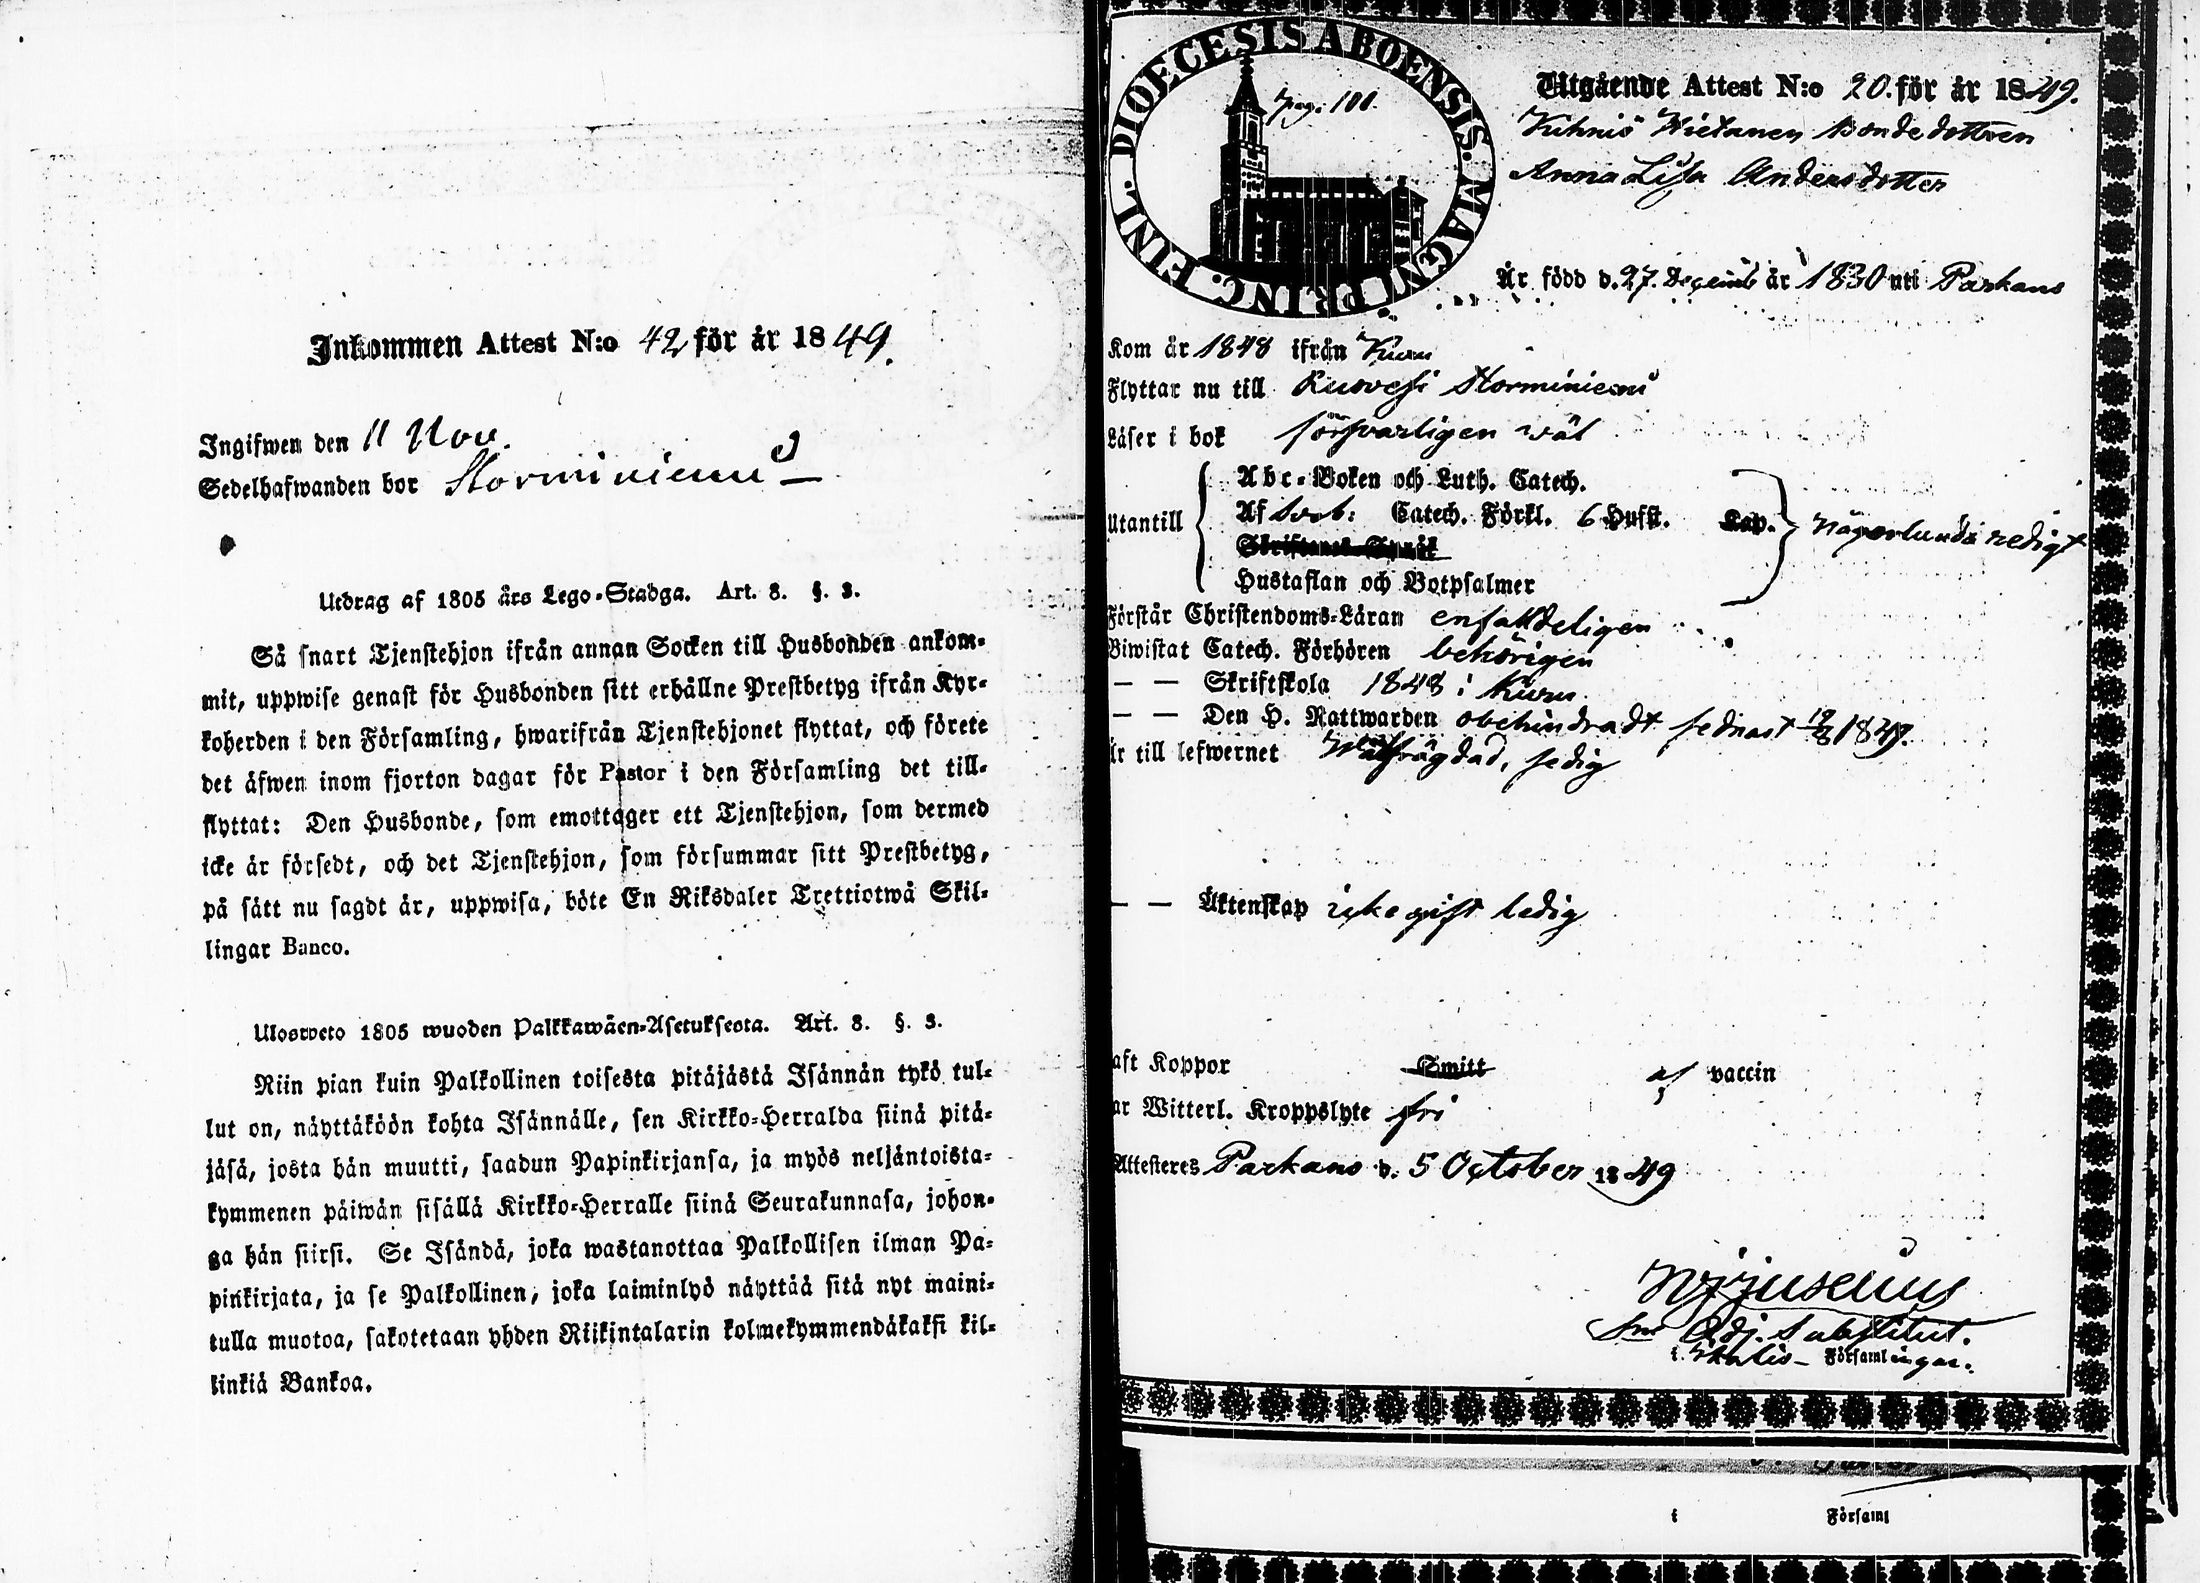 Inkommen Attest N:o 42 för år 1849.
Ingifwen den 11 Nov.
Sedelhafwanden bor Storminiemi
Utdrag af 1805 års Lego-Stadga. Art. 8. §. 3.
Så snart Tjenstehjon ifrån annan Socken till Husbonden ankom-
mit, uppwise genast för Husbonden sitt erhållne Prestbetyg ifrån Kyr-
koherden i den Församling, hwarifrån Tjenstehjonet flyttat, och förete
det äfwen inom fjorton dagar för Pastor i den Församling det till-
flyttat: Den Husbonde, som emottager ett Tjenstehjon, som dermed
icke är försedt, och det Tjenstehjon, som försummar sitt Prestbetyg,
på sätt nu sagdt är, uppwisa, böte En Riksdaler Trettiotwå Skil-
lingar Banco.
Ulosweto 1805 wuoden Palkkawäen-Asetuksesta. Art. 8. §. 3.
Niin pian kuin Palkollinen toisesta pitäjästä Isännän tykö tul-
lut on, näyttäköön kohta Isännälle, sen Kirkko-Herralda siinä pitä-
jäsä, josta hän muutti, saadun Papinkirjansa, ja myös neljäntoista-
kymmenen päiwän sisällä Kirkko-Herralle siinä Seurakunnasa, johon-
ga hän siirsi. Se Isändä, joka wastanottaa Palkollisen ilman Pa-
pinkirjata, ja se Palkollinen, joka laiminlyö näyttää sitä nyt maini-
tulla muotoa, sakotetaan yhden Riikintalarin kolmekymmendäkaksi kil-
linkiä Bankoa.
DIOECESIS ABOENSIS. MAGNI PRINC. FINL.
pag. 100.
Utgående Attest N:o 20. för år 1849.
Kihniö Nietanen Bondedottren
Anna Lisa Andersdotter
Är född d. 27. Decemb år 1830 uti Parkano
Kom år 1848 ifrån Kuru
Flyttar nu till Ruovesi Storminiemi
Läser i bok försvarligen wäl
Utantill
Abc-Boken och Luth. Catech.
Af Sveb: Catech. Förkl. 6 Hufst. Kap.
Skriftenes Språk
Hustaflan och Botpsalmer
någorlunda redigt
Förstår Christendoms-Läran enfalldeligen
Biwistat Catech. Förhören behörigen
— — Skriftskola 1848 i Kuru.
— — Den H. Nattwarden obehindradt sednast 12/8 1849.
Är till lefwernet Wälfrägdad, sedig
— — Äktenskap icke gift ledig
aft Koppor Smitt af vaccin
ar Witterl. Kroppslyte fri
Attesteres Parkano d. 5 October 1849
Adj. Substitut.
i. Församlingar.
i Församl